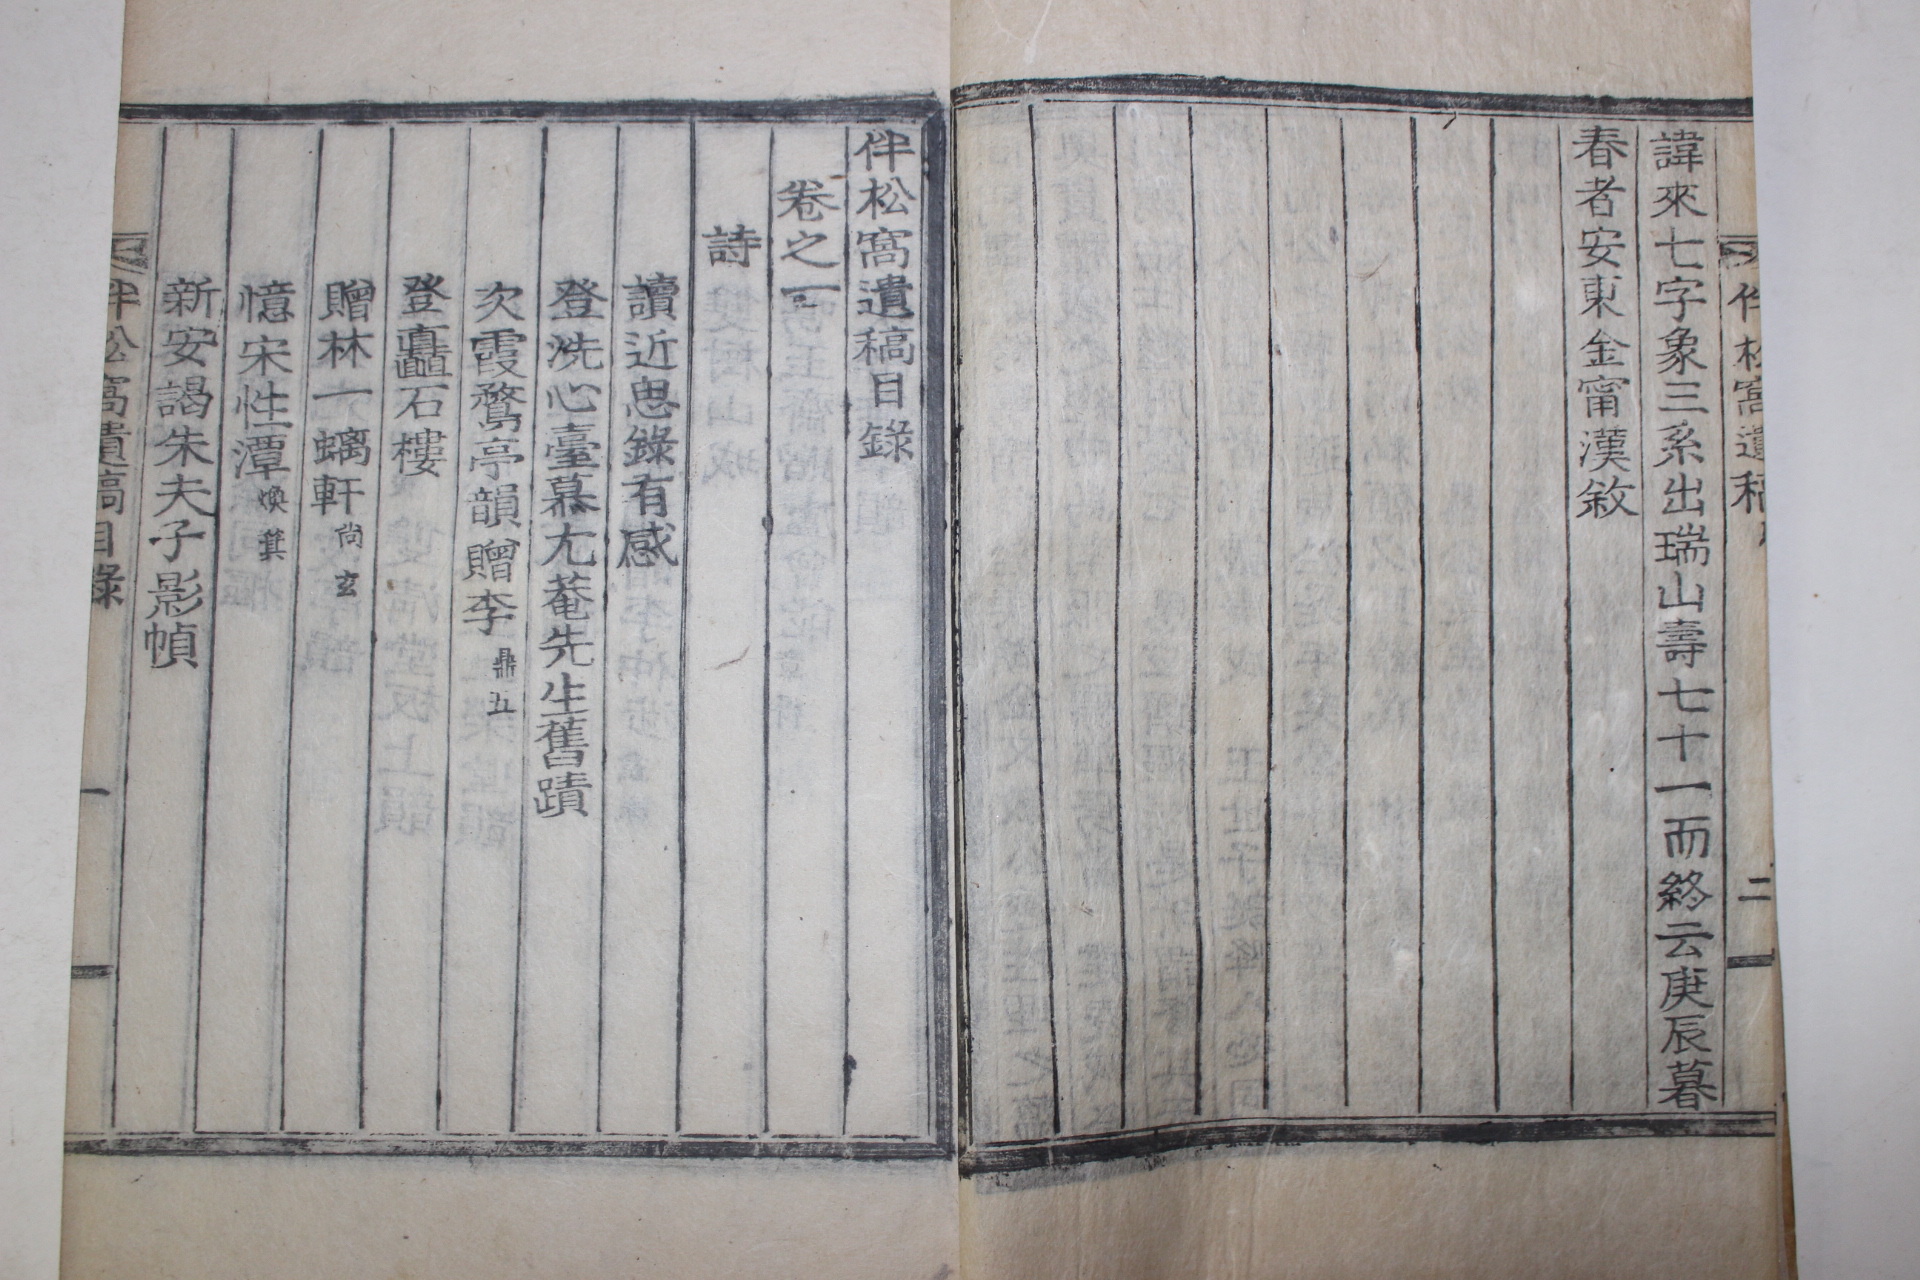 諱來七字象三系出瑞山壽七十一而終云庚辰暮
春者安東金甯漢敘
伴松窩遺稿
二
伴松窩遺稿目錄
卷之一
詩
讀近思錄有感
登洗心臺慕尤菴先生舊蹟
次霞鶩亭韻贈李鼎五
登矗石樓
贈林一螭軒尙玄
憶宋性潭煥箕
新安謁朱夫子影幀
伴松窩遺稿目錄
一